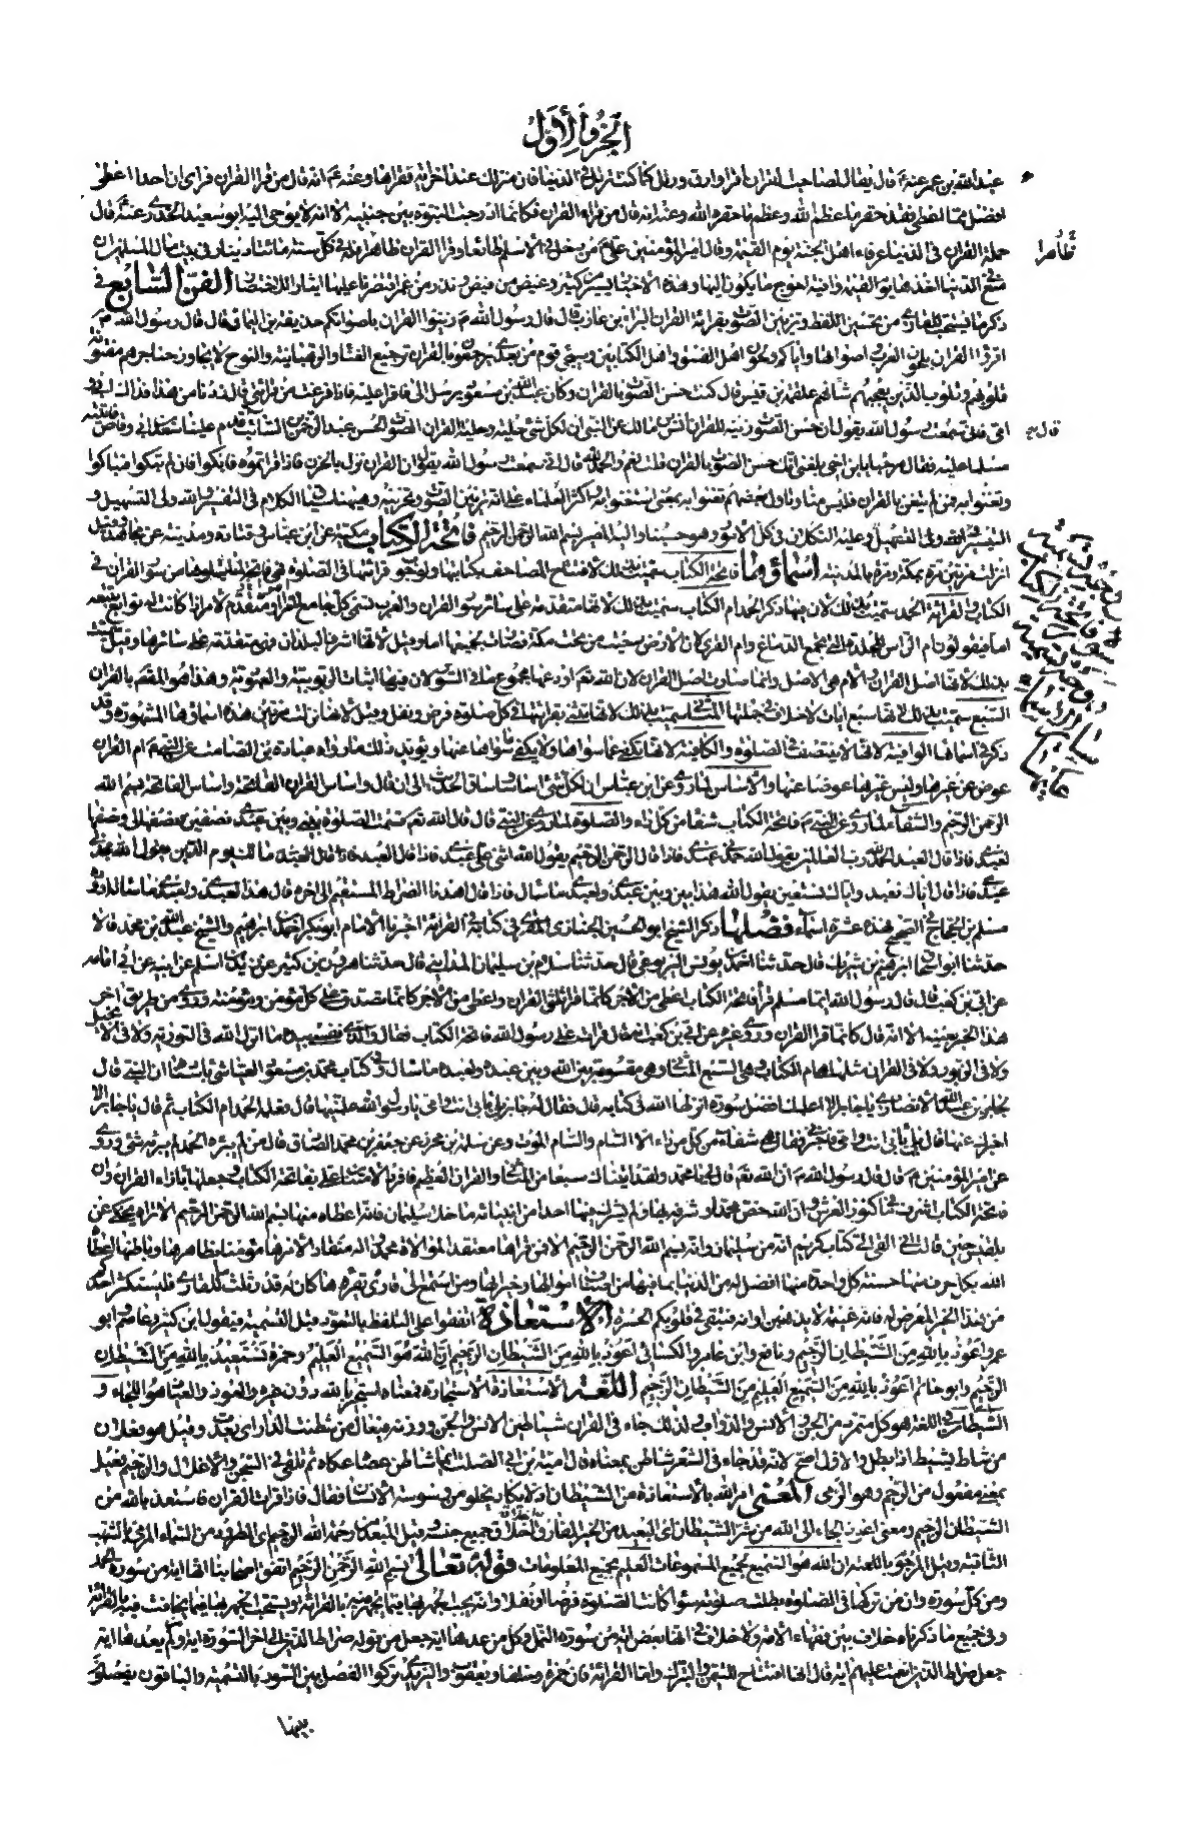 الجزؤ الأول
عبد الله بن عمر عنه م قال يقال لصاحب القران اقرأ وارق ورتل كما كنت ترتل في الدنيا فان منزلك عند اخر اية تقرأها وعنه م انه قال من قرأ القران فرأى ان احدا اعطى
افضل مما اعطى فقد حقر ما عظم الله وعظم ما حقر الله وعنه انه قال من قرأ القران فكأنما ادرجت النبوة بين جنبيه الا انه لا يوحى اليه ابو سعيد الخدري عنه م قال
حملة القران في الدنيا عرفاء اهل الجنة يوم القيمة وقال امير المؤمنين علي م من دخل في الاسلام طائعا وقرأ القران ظاهرا فله في كل سنة مائتا دينار في بيت مال المسلمين
ظاهرا
منع في الدنيا اخذها يوم القيمة وافية احوج ما يكون اليها وهذه الاخبار يسير من كثير وغيض من فيض ونذر من غمر اقتصرنا عليها ايثارا للاختصار الفن السابع في
ذكر ما يستحب للقارئ من تحسين اللفظ وتزيين الصوت بقرائة القران البراء بن عازب قال قال رسول الله م زينوا القران باصواتكم حذيفة بن اليمان قال قال رسول الله م
اقرؤا القران بلحون العرب واصواتها واياكم ولحون اهل الفسق واهل الكتابين وسيجئ قوم من بعدي يرجعون بالقران ترجيع الغناء والرهبانية والنوح لا يجاوز حناجرهم مفتونة
قلوبهم وقلوب الذين يعجبهم شانهم علقمة بن قيس قال كنت حسن الصوت بالقران وكان عبد الله بن مسعود يرسل الي فاقرأ عليه فاذا فرغت من قرائتي قال زدنا من هذا فداك ابي و
امي فاني سمعت رسول الله يقول ان حسن الصوت زينة للقران انس بن مالك عن النبي ان لكل شئ حلية وحلية القران الصوت الحسن عبد الرحمن بن السائب قال قدم علينا سعد بن ابي وقاص فاتيته
مسلما عليه فقال مرحبا بابن اخي بلغني انك حسن الصوت بالقران قلت نعم والحمد لله قال فاني سمعت رسول الله يقول ان القران نزل بالحزن فاذا قرأتموه فابكوا فان لم تبكوا فتباكوا
وتغنوا به فمن لم يتغن بالقران فليس منا وتاول بعضهم تغنوا به بمعنى استغنوا به واكثر العلماء على انه تزيين الصوت وتحزينه
فاتحة الكتاب مكية عن ابن عباس وقتادة ومدنية عن مجاهد وقيل
انزلت مرتين مرة بمكة ومرة بالمدينة اسماؤها فاتحة الكتاب سميت بذلك لافتتاح المصاحف بكتابتها ولوجوب قرائتها في الصلوة فهي فاتحة لما يتلوها من سور القران في
الكتاب والقراءة الحمد سميت بذلك لان فيها ذكر الحمد ام الكتاب سميت بذلك لانها متقدمة على سائر سور القران والعرب تسمي كل جامع امرا او متقدم لامر اذا كانت له توابع تتبعه
اما فيقولون ام الراس للجلدة التي تجمع الدماغ وام القرى لان الارض دحيت من تحت مكة فصارت لجميعها اما وقيل لانها اشرف البلدان فهي متقدمة على سائرها وقيل سميت
بذلك لانها اصل القران والام هي الاصل وانما صارت اصل القران لان الله تعم اودعها مجموع ما في السور لان فيها اثبات الربوبية والعبودية وهذا هو المقصود بالقران
السبع سميت بذلك لانها سبع ايات لا خلاف في جملتها المثاني سميت بذلك لانها تثنى بقرائتها في كل صلوة فرض ونفل وقيل لانها نزلت مرتين هذه اسماؤها المشهورة وقد
ذكر في اسمائها الوافية لانها لا تنتصف في الصلوة والكافية لانها تكفي عما سواها ولا يكفي ما سواها عنها ويؤيد ذلك ما رواه عبادة بن الصامت عن النبي م ام القران
عوض عن غيرها وليس غيرها عوضا عنها والاساس لما روي عن ابن عباس ان لكل شئ اساسا وساق الحديث الى ان قال واساس القران الفاتحة واساس الفاتحة بسم الله
الرحمن الرحيم والشفاء لما روي عن النبي م فاتحة الكتاب شفاء من كل داء والصلوة لما روي عن النبي م قال قال الله تعم قسمت الصلوة بيني وبين عبدي نصفين نصفها لي ونصفها
لعبدي فاذا قال العبد الحمد لله رب العالمين يقول الله حمدني عبدي فاذا قال الرحمن الرحيم يقول الله اثنى علي عبدي فاذا قال العبد مالك يوم الدين يقول الله مجدني
عبدي فاذا قال اياك نعبد واياك نستعين يقول الله هذا بيني وبين عبدي ولعبدي ما سال فاذا قال اهدنا الصراط المستقيم الى اخره قال هذا لعبدي ولعبدي ما سال اورده
مسلم بن الحجاج في الصحيح فهذه عشرة اسماء فضلها ذكر الشيخ ابو الحسين الخبازي المقري في كتابه في القرائة اخبرنا الامام ابو بكر احمد بن ابراهيم والشيخ عبد الله بن محمد قالا
حدثنا ابو اسحق ابراهيم بن شريك قال حدثنا احمد بن يونس اليربوعي قال حدثنا سلام بن سليمان المدايني قال حدثنا هرون بن كثير عن زيد بن اسلم عن ابيه عن ابي امامة
عن ابي بن كعب قال قال رسول الله ايما مسلم قرأ فاتحة الكتاب اعطي من الاجر كانما قرأ ثلثي القران واعطي من الاجر كانما تصدق على كل مؤمن ومؤمنة وروي من طريق اخر
هذا الخبر بعينه الا انه قال كانما قرأ القران وروى غيره عن ابي بن كعب انه قال قرأت على رسول الله فاتحة الكتاب فقال والذي نفسي بيده ما انزل الله في التورية ولا في الانجيل
ولا في الزبور ولا في القران مثلها هي ام الكتاب وهي السبع المثاني وهي مقسومة بين الله وبين عبده ولعبده ما سال وفي كتاب محمد بن مسعود العياشي باسناده ان النبي قال
لجابر بن عبد الله الانصاري يا جابر الا اعلمك افضل سورة انزلها الله في كتابه قال فقال له جابر بلى بابي انت وامي يا رسول الله علمنيها قال فعلمه الحمد ام الكتاب ثم قال يا جابر الا
اخبرك عنها قال بلى بابي انت وامي فاخبرني فقال هي شفاء من كل داء الا السام والسام الموت وعن سلمة بن محرز عن جعفر بن محمد الصادق قال من لم يبرئه الحمد لم يبرئه شئ وروي
عن امير المؤمنين م قال قال رسول الله م ان الله تعم قال لي يا محمد ولقد اتيناك سبعا من المثاني والقران العظيم فافرد الامتنان علي بفاتحة الكتاب وجعلها بازاء القران وان
فاتحة الكتاب اشرف ما في كنوز العرش وان الله خص محمدا وشرفه بها ولم يشرك فيها احدا من انبيائه ما خلا سليمان فانه اعطاه منها بسم الله الرحمن الرحيم الا تراه يحكي عن
بلقيس حين قالت اني القي الي كتاب كريم انه من سليمان وانه بسم الله الرحمن الرحيم الا فمن قرأها معتقدا لموالاة محمد واله منقادا لامرها مؤمنا بظاهرها وباطنها اعطاه
الله بكل حرف منها حسنة كل واحدة منها افضل له من الدنيا بما فيها من اصناف اموالها وخيراتها ومن استمع الى قارئ يقرؤها كان له قدر ثلث ما للقارئ فليستكثر احدكم
من هذا الخير المعرض له فانه غنيمة لا يذهبن اوانه فتبقى في قلوبكم الحسرة الاستعاذة اتفقوا على التلفظ بالتعوذ قبل التسمية فيقول ابن كثير وعاصم وابو
عمرو اعوذ بالله من الشيطان الرجيم ونافع وابن عامر والكسائي اعوذ بالله من الشيطان الرجيم ان الله هو السميع العليم وحمزة نستعيذ بالله من الشيطان
الرجيم وابو حاتم اعوذ بالله السميع العليم من الشيطان الرجيم اللغة الاستعاذة الاستجارة فمعناه استجير بالله دون غيره والعوذ والعياذ هو اللجاء و
الشيطان في اللغة هو كل متمرد من الجن والانس والدواب ولذلك جاء في القران شياطين الانس والجن ووزنه فيعال من شطنت الدار اي بعدت وقيل هو فعلان
من شاط يشيط اذا بطل والاول اصح لانه قد جاء في الشعر شاطن بمعناه قال امية بن ابي الصلت ايما شاطن عصاه عكاه ثم يلقى في السجن والاغلال والرجيم فعيل
بمعنى مفعول من الرجم وهو الرمي المعنى امر الله بالاستعاذة من الشيطان اذ لا يكاد يخلو من وسوسته الانسان فقال فاذا قرأت القران فاستعذ بالله من
الشيطان الرجيم ومعنى اعوذ الجاء الى الله من شر الشيطان اي البعيد من الخير المفارق اخلاقه اخلاق جميع جنسه وقيل المبعد من رحمة الله الرجيم اي المطرود من السماء المرمي بالشهب
الثاقبة وقيل المرجوم باللعنة ان الله هو السميع لجميع المسموعات العليم بجميع المعلومات قوله تعالى بسم الله الرحمن الرحيم اتفق اصحابنا انها اية من سورة الحمد
ومن كل سورة وان من تركها في الصلوة بطلت صلوته سواء كانت الصلوة فرضا او نفلا وانه يجب الجهر بها فيما يجهر فيه بالقرائة ويستحب الجهر بها فيما يخافت فيه بالقرائة
وفي جميع ما ذكرناه خلاف بين فقهاء الامة ولا خلاف في انها بعض اية من سورة النمل وكل من عدها اية جعل من قوله صراط الذين الى اخر السورة اية وكل من لم يعدها اية
جعل صراط الذين انعمت عليهم اية وقال انها افتتاح للتيمن والتبرك واما القرائة فان حمزة وخلفا ويعقوب واليزيدي تركوا الفصل بين السور بالتسمية والباقون يفصلون
بينها